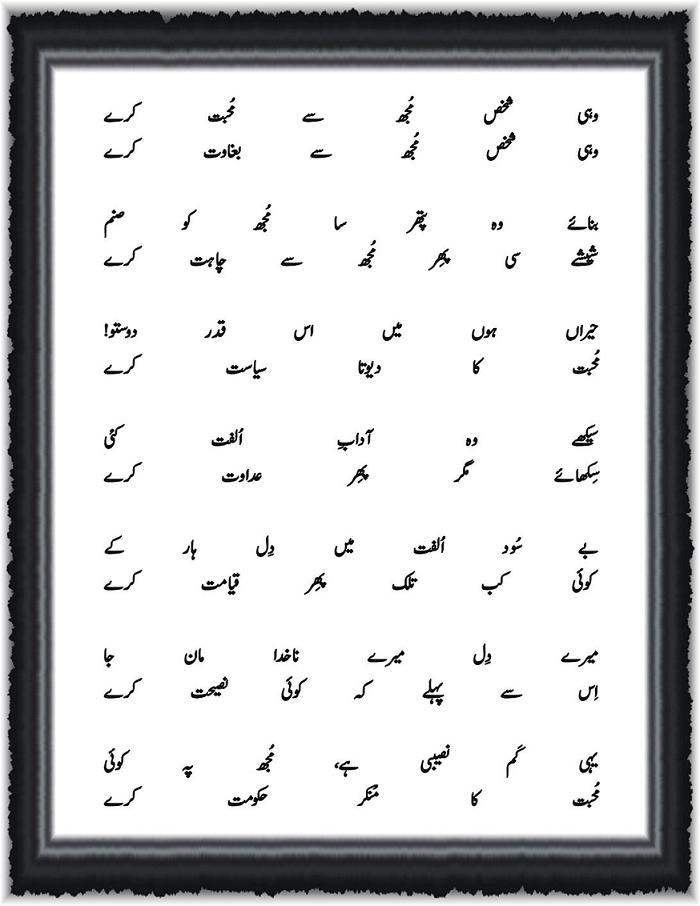 وہی شخص مُجھ سے مُحبت کرے
وہی شخص مُجھ سے بغاوت کرے
بنائے وہ پتھر سا مُجھ کو صنم
شیشے سی پِھر مُجھ سے چاہت کرے
حیراں ہوں میں اس قدر دوستو!
مُحبت کا دیوتا سیاست کرے
سیکھے وہ آدابِ اُلفت کئی
سِکھائے مگر پِھر عداوت کرے
بے سُود اُلفت میں دِل ہار کے
کوئی کب تلک پِھر قیامت کرے
میرے دِل میرے ناخدا مان جا
اِس سے پہلے کہ کوئی نصیحت کرے
یہی کَم نصیبی ہے، مُجھ پہ کوئی
مُحبت کا مُنکر حکومت کرے